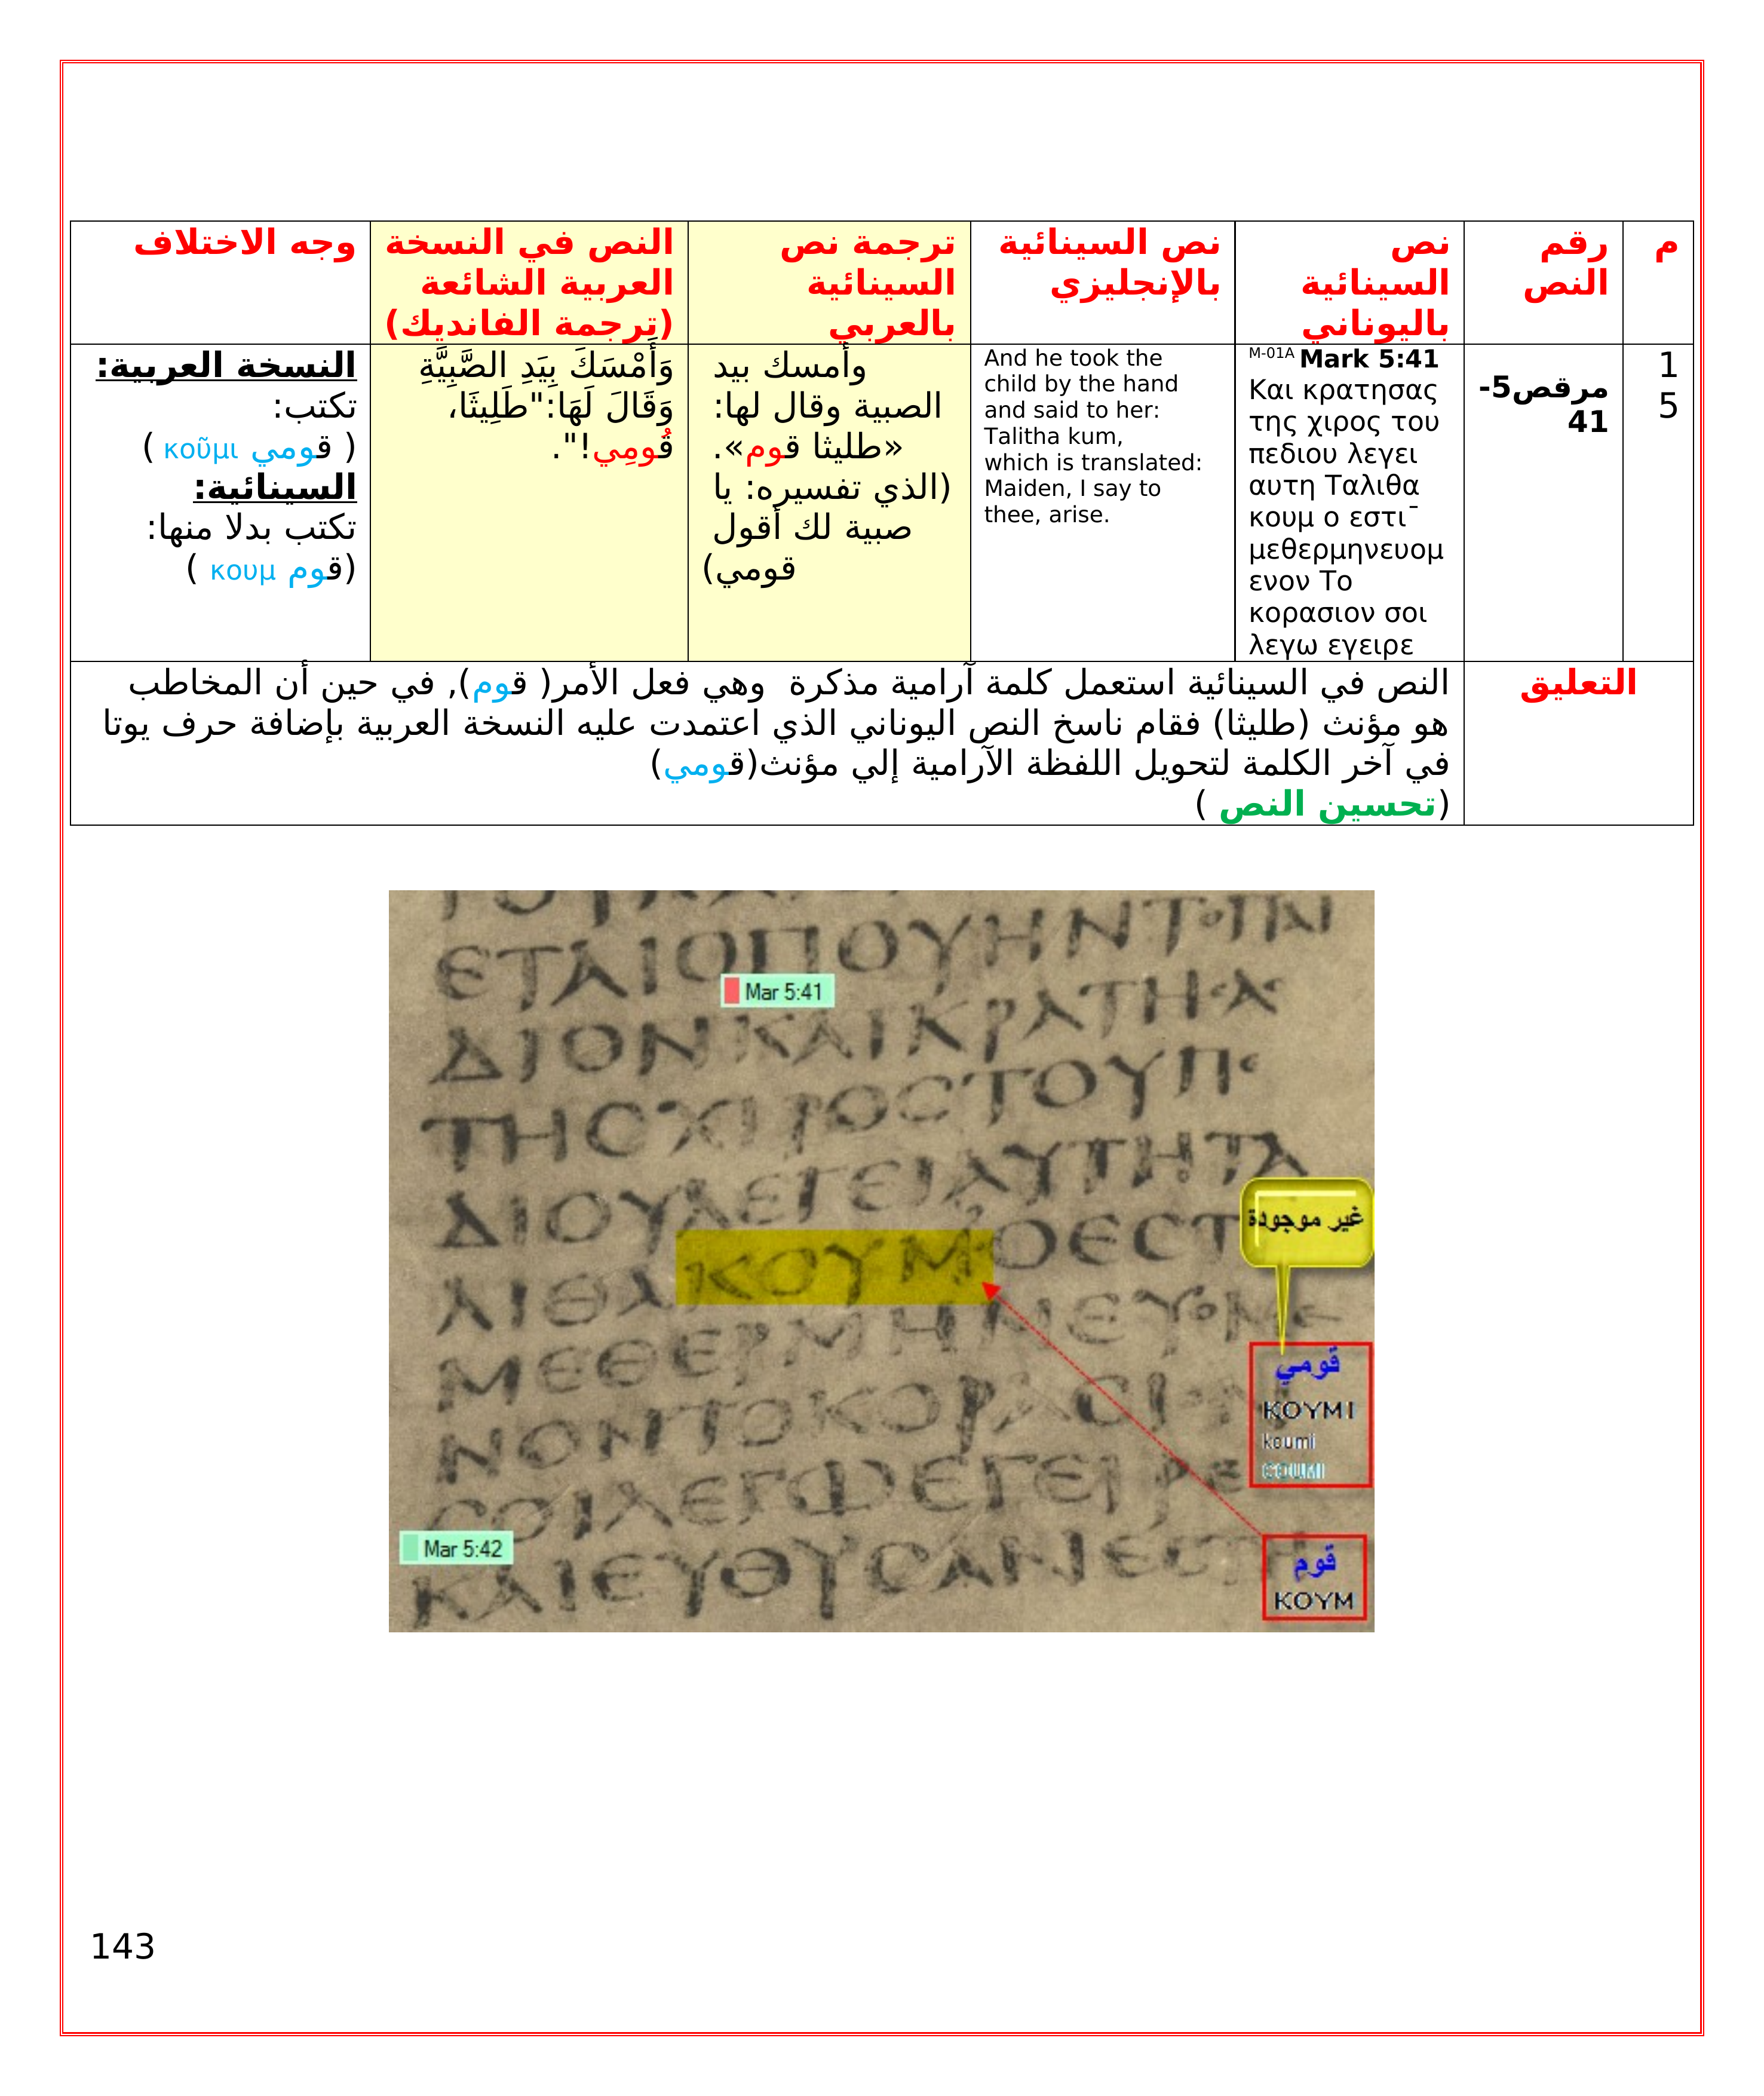 م
رقم
النص
نص
السينائية
باليوناني
نص السينائية
بالإنجليزي
ترجمة نص
السينائية
بالعربي
النص في النسخة
العربية الشائعة
(ترجمة الفانديك)
وجه الاختلاف
1
5
مرقص5-
41
M-01A Mark 5:41
Και κρατησας
της χιρος του
πεδιου λεγει
αυτη Ταλιθα
κουμ ο εστι¯
μεθερμηνευομ
ενον Το
κορασιον σοι
λεγω εγειρε
And he took the
child by the hand
and said to her:
Talitha kum,
which is translated:
Maiden, I say to
thee, arise.
وأمسك بيد
الصبية وقال لها:
«طليثا قوم».
(الذي تفسيره: يا
صبية لك أقول
قومي)
وَأَمْسَكَ بِيَدِ الصَّبِيَّةِ
وَقَالَ لَهَا:"طَلِيثَا،
قُومِي!".
النسخة العربية:
تكتب:
( قومي κοῦμι )
السينائية:
تكتب بدلا منها:
(قوم κουμ )
التعليق
النص في السينائية استعمل كلمة آرامية مذكرة وهي فعل الأمر( قوم), في حين أن المخاطب
هو مؤنث (طليثا) فقام ناسخ النص اليوناني الذي اعتمدت عليه النسخة العربية بإضافة حرف يوتا
في آخر الكلمة لتحويل اللفظة الآرامية إلي مؤنث(قومي)
(تحسين النص )
ΕΤΑΙΟΠΟΥΗΝΤΟΠΑΙ
Mar 5:41
ΔΙΟΝΚΑΙΚΡΑΤΗΣΑΣ
ΤΗΣΧΙΡΟΣΤΟΥΠΕ
ΔΙΟΥΛΕΓΕΙΑΥΤΗΤΑ
ΛΙΘΑΚΟΥΜΟΕΣΤ
غير موجودة
ΜΕΘΕΡΜΗΝΕΥΟΜΕ
قومي
ΝΟΝΤΟΚΟΡΑΣΙ
ΚΟΥΜΙ
koumi
COUMI
ΣΟΙΛΕΓΩΕΓΕΙΡΕ
Mar 5:42
ΚΑΙΕΥΘΥΣΑΝΕΣΤΗ
قوم
ΚΟΥΜ
143